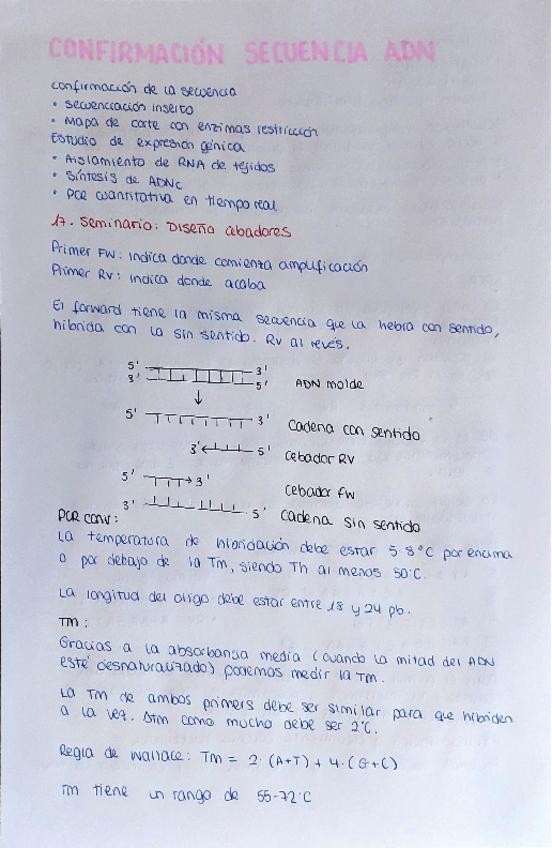 CONFIRMACIÓN SECUENCIA ADN
confirmación de la secuencia
• secuenciación inserto
• Mapa de corte con enzimas restricción
Estudio de expresión génica
• Aislamiento de RNA de tejidos
• Síntesis de ADNc
• PCR cuantitativa en tiempo real
17. Seminario: Diseño cebadores
Primer FW: indica donde comienza amplificación
Primer RV: indica donde acaba
El forward tiene la misma secuencia que la hebra con sentido,
hibrida con la sin sentido. RV al revés.
5' 3'
3' 5' ADN molde
5' 3' Cadena con sentido
3' 5' Cebador RV
5' 3' Cebador FW
3' 5' Cadena sin sentido
PCR conv:
La temperatura de hibridación debe estar 5-8°C por encima
o por debajo de la Tm, siendo Th al menos 50°C.
La longitud del oligo debe estar entre 18 y 24 pb.
TM:
Gracias a la absorbancia media (cuando la mitad del ADN
esté desnaturalizado) podemos medir la Tm.
La TM de ambos primers debe ser similar para que hibriden
a la vez. ΔTm como mucho debe ser 2°C.
Regla de Wallace: TM = 2·(A+T) + 4·(G+C)
Tm tiene un rango de 55-72°C